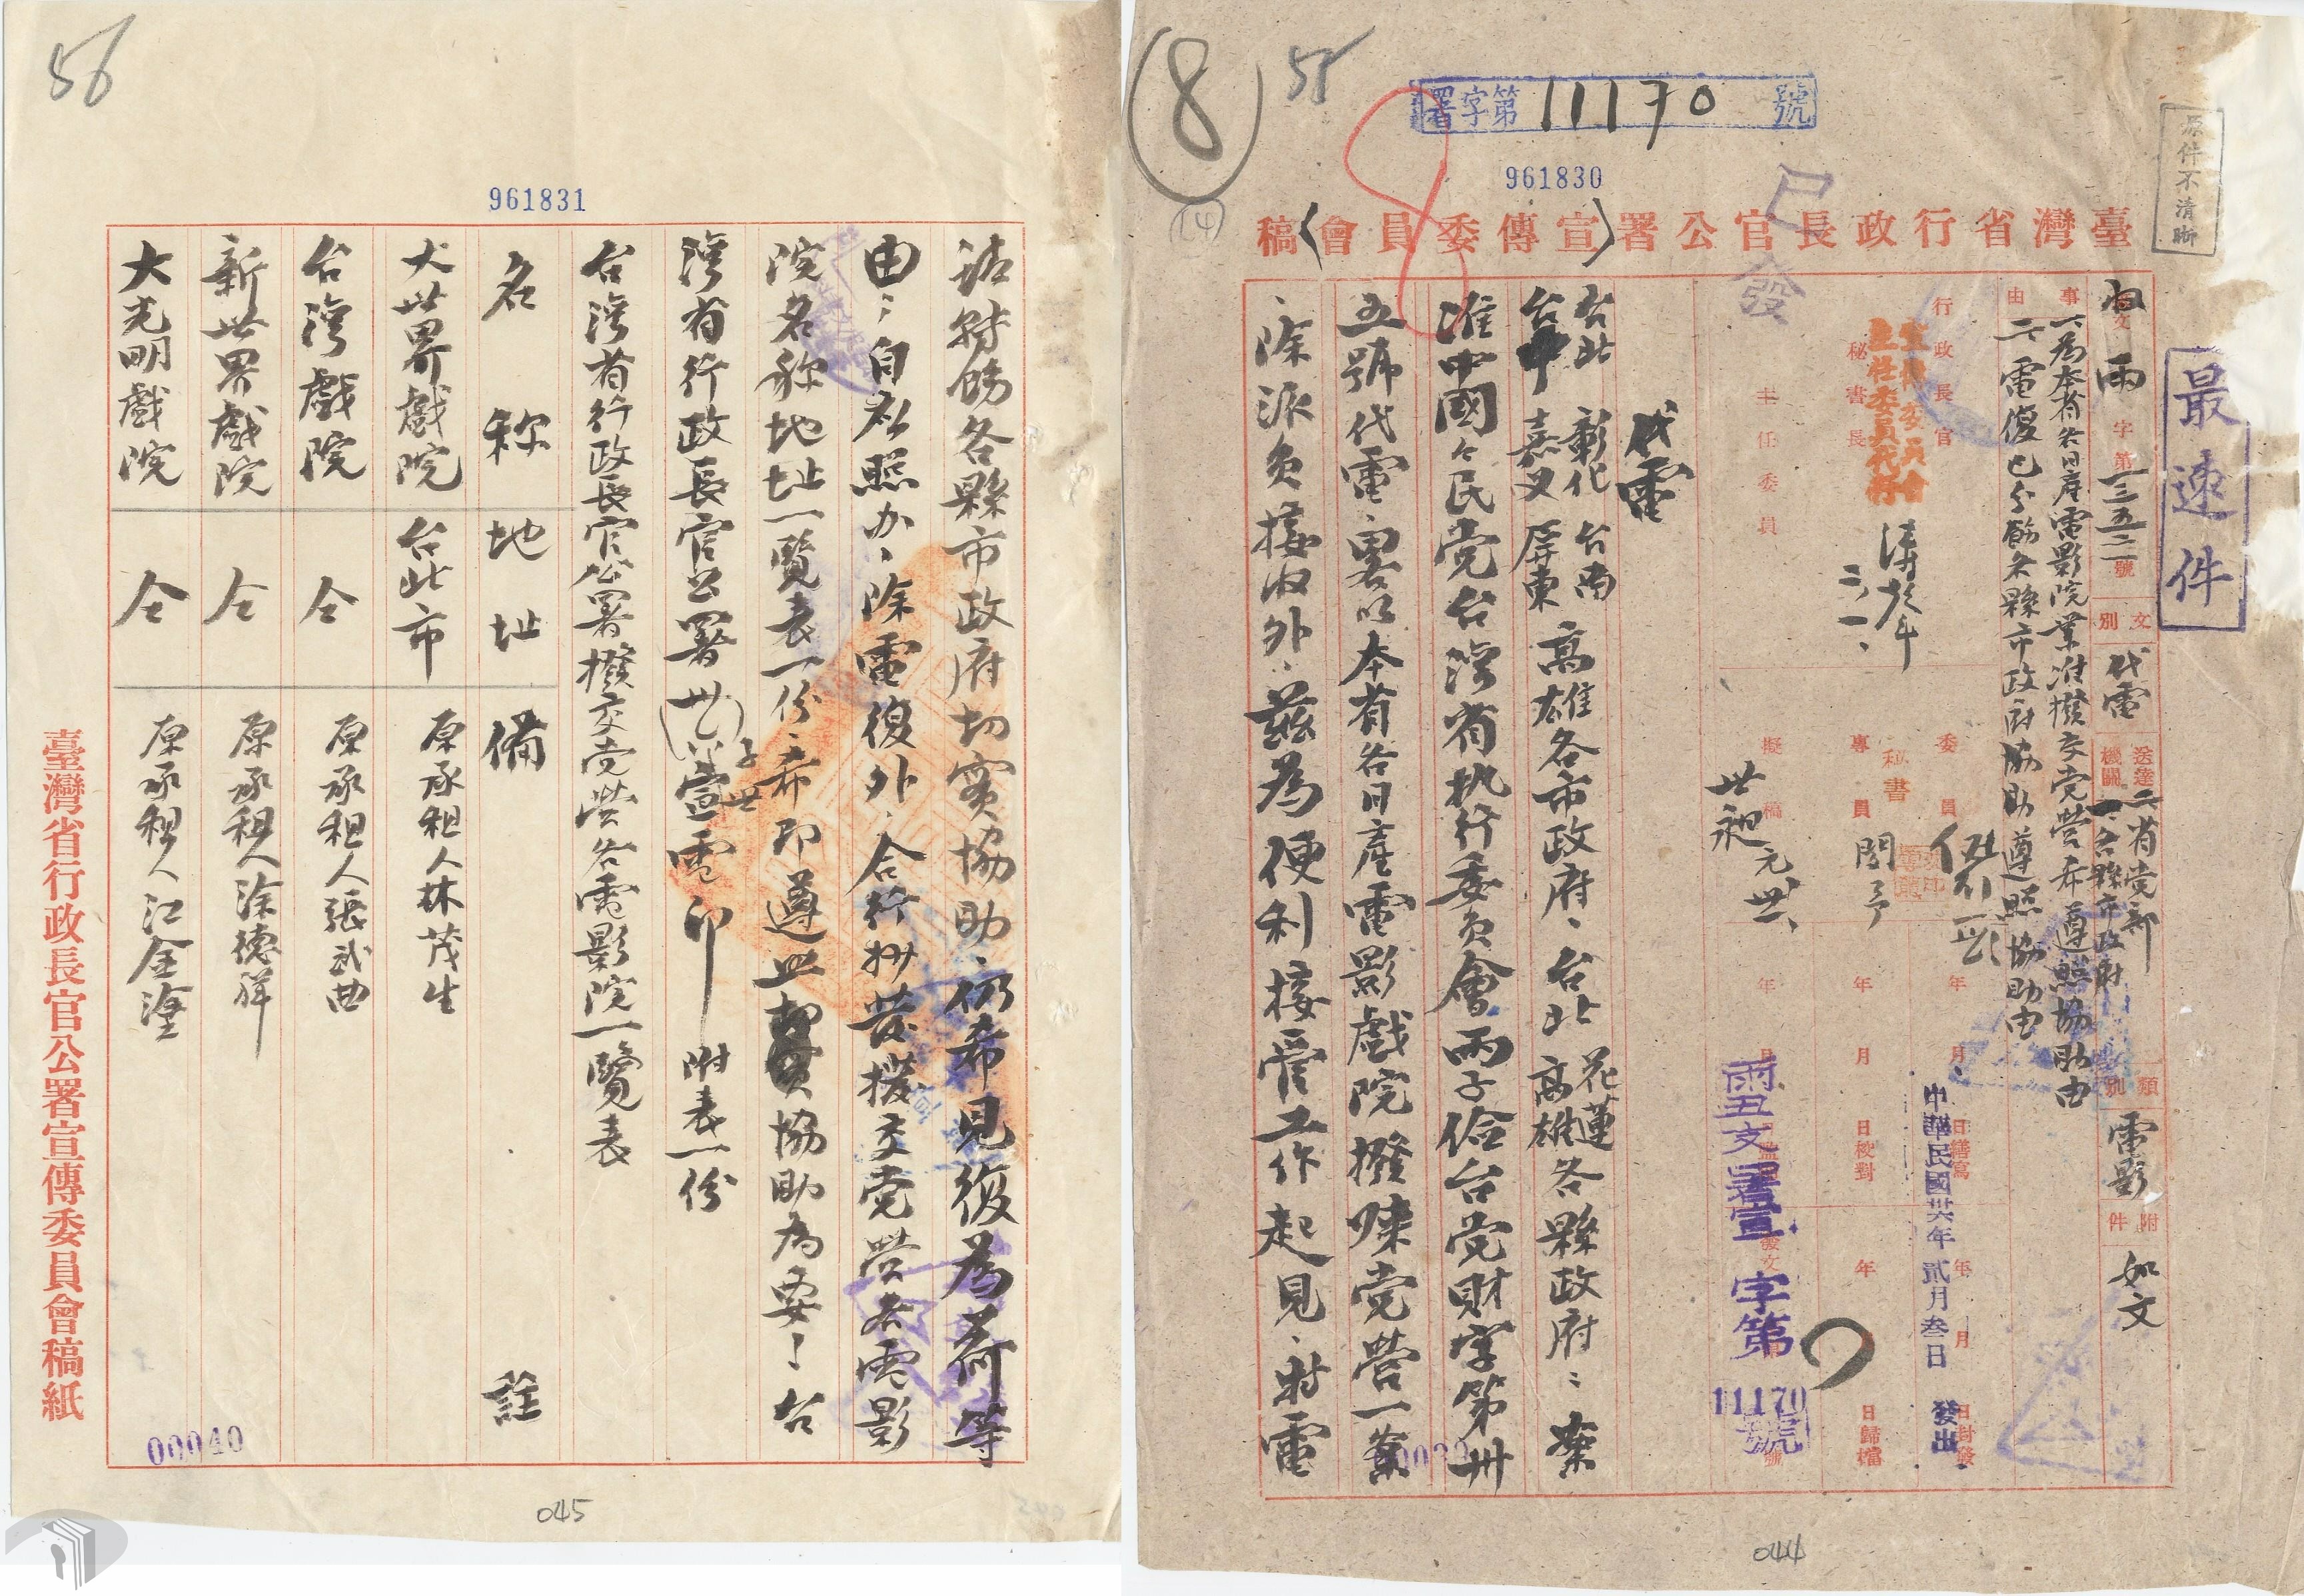 署字第11170號
961830
8
55
14
原件不清晰
最速件
已發
臺灣省行政長官公署(宣傳委員會)稿
收文 雨字第一三五二號
文別 代電
送達機關 一、各縣市政府 二、省党部
類別 電影
附件 如文
事由
一、為本省各日產電影院業准撥交党營希遵照協助由
二、電復已分飭各縣市政府協助遵照協助由
行政長官
秘書長
宣傳委員會
主任委員代行
主任委員
二、一、
委員
秘書
專員
擬稿
元卅一、
年月日繕寫
年月日校對
年月日封發
年月日歸檔
中華民國卅六年貳月叁日發出
丑支署宣字第11170號
代電
台北 彰化 台南
台中 嘉义 屏東
高雄各市政府、台北 花蓮 高雄各縣政府:案
准中國々民党台湾省执行委员會丙子儉台党財字第卅
五號代電、畧以本省各日產電影戲院撥歸党營一案
、除派负接收外、茲為便利接管工作起見、特電
044
56
961831
請轉飭各縣市政府切實協助仍希見復為荷等
由:自應照办、除電復外、合行抄發撥交党營各電影
院名称地址一覽表一份、希即遵照切實協助為要!台
灣省行政長官公署(卅)子世宣電印 附表一份
台灣省行政長官公署撥交党營各電影院一覽表
名称 地址 備註
大世界戲院 台北市 原承租人林茂生
台灣戲院 仝 原承租人張武曲
新世界戲院 仝 原承租人涂德祥
大光明戲院 仝 原承租人江金塗
臺灣省行政長官公署宣傳委員會稿紙
00040
045